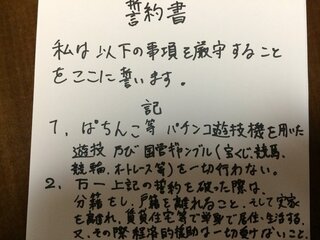 誓約書
私は以下の事項を厳守すること
をここに誓います。
記
1, ぱちんこ等 パチンコ遊技機を用いた
遊技 及び 国営ギャンブル(宝くじ、競馬、
競輪、オートレース等)を一切行わない。
2, 万一上記の誓約を破った際は、
分籍をし、戸籍を離れること。そして実家
を離れ、賃貸住宅等で単身で居住・生活する。
又、その際経済的援助は一切受けないこと